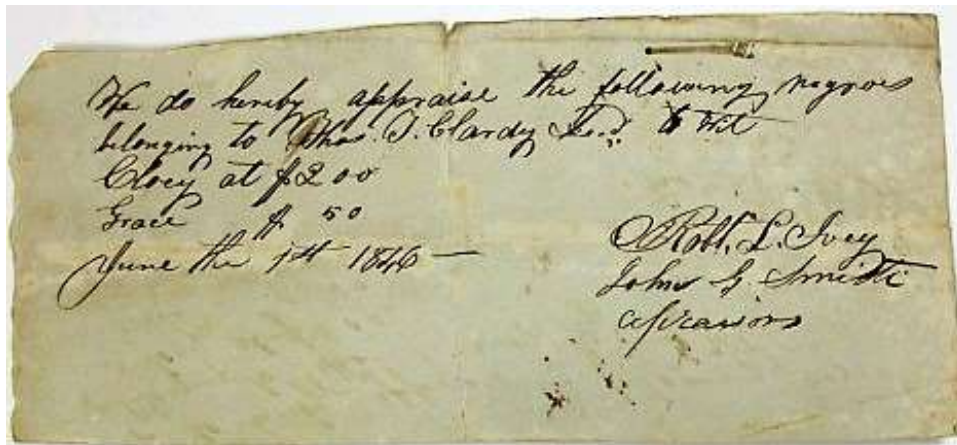 We do hereby appraise the following negroes
belonging to Thos. J. Clardy to wit
Cloey at $200
Grace $ 50
June the 1st 1846
Robt. L. Ivey
John G. Smith
apraisors